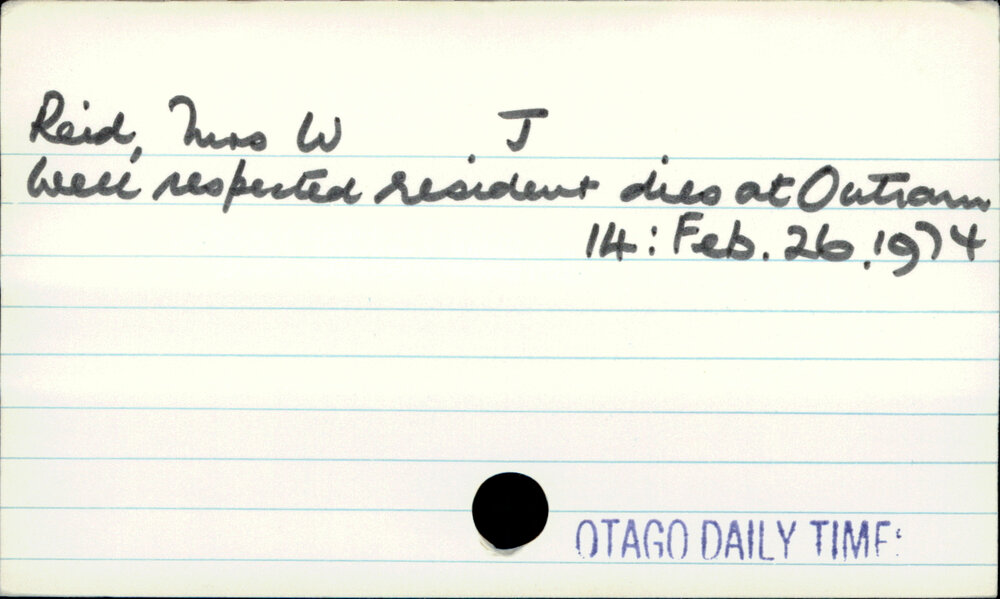 Reid, Mrs W J
Well respected resident dies at Outram
14: Feb. 26, 1974
OTAGO DAILY TIME: